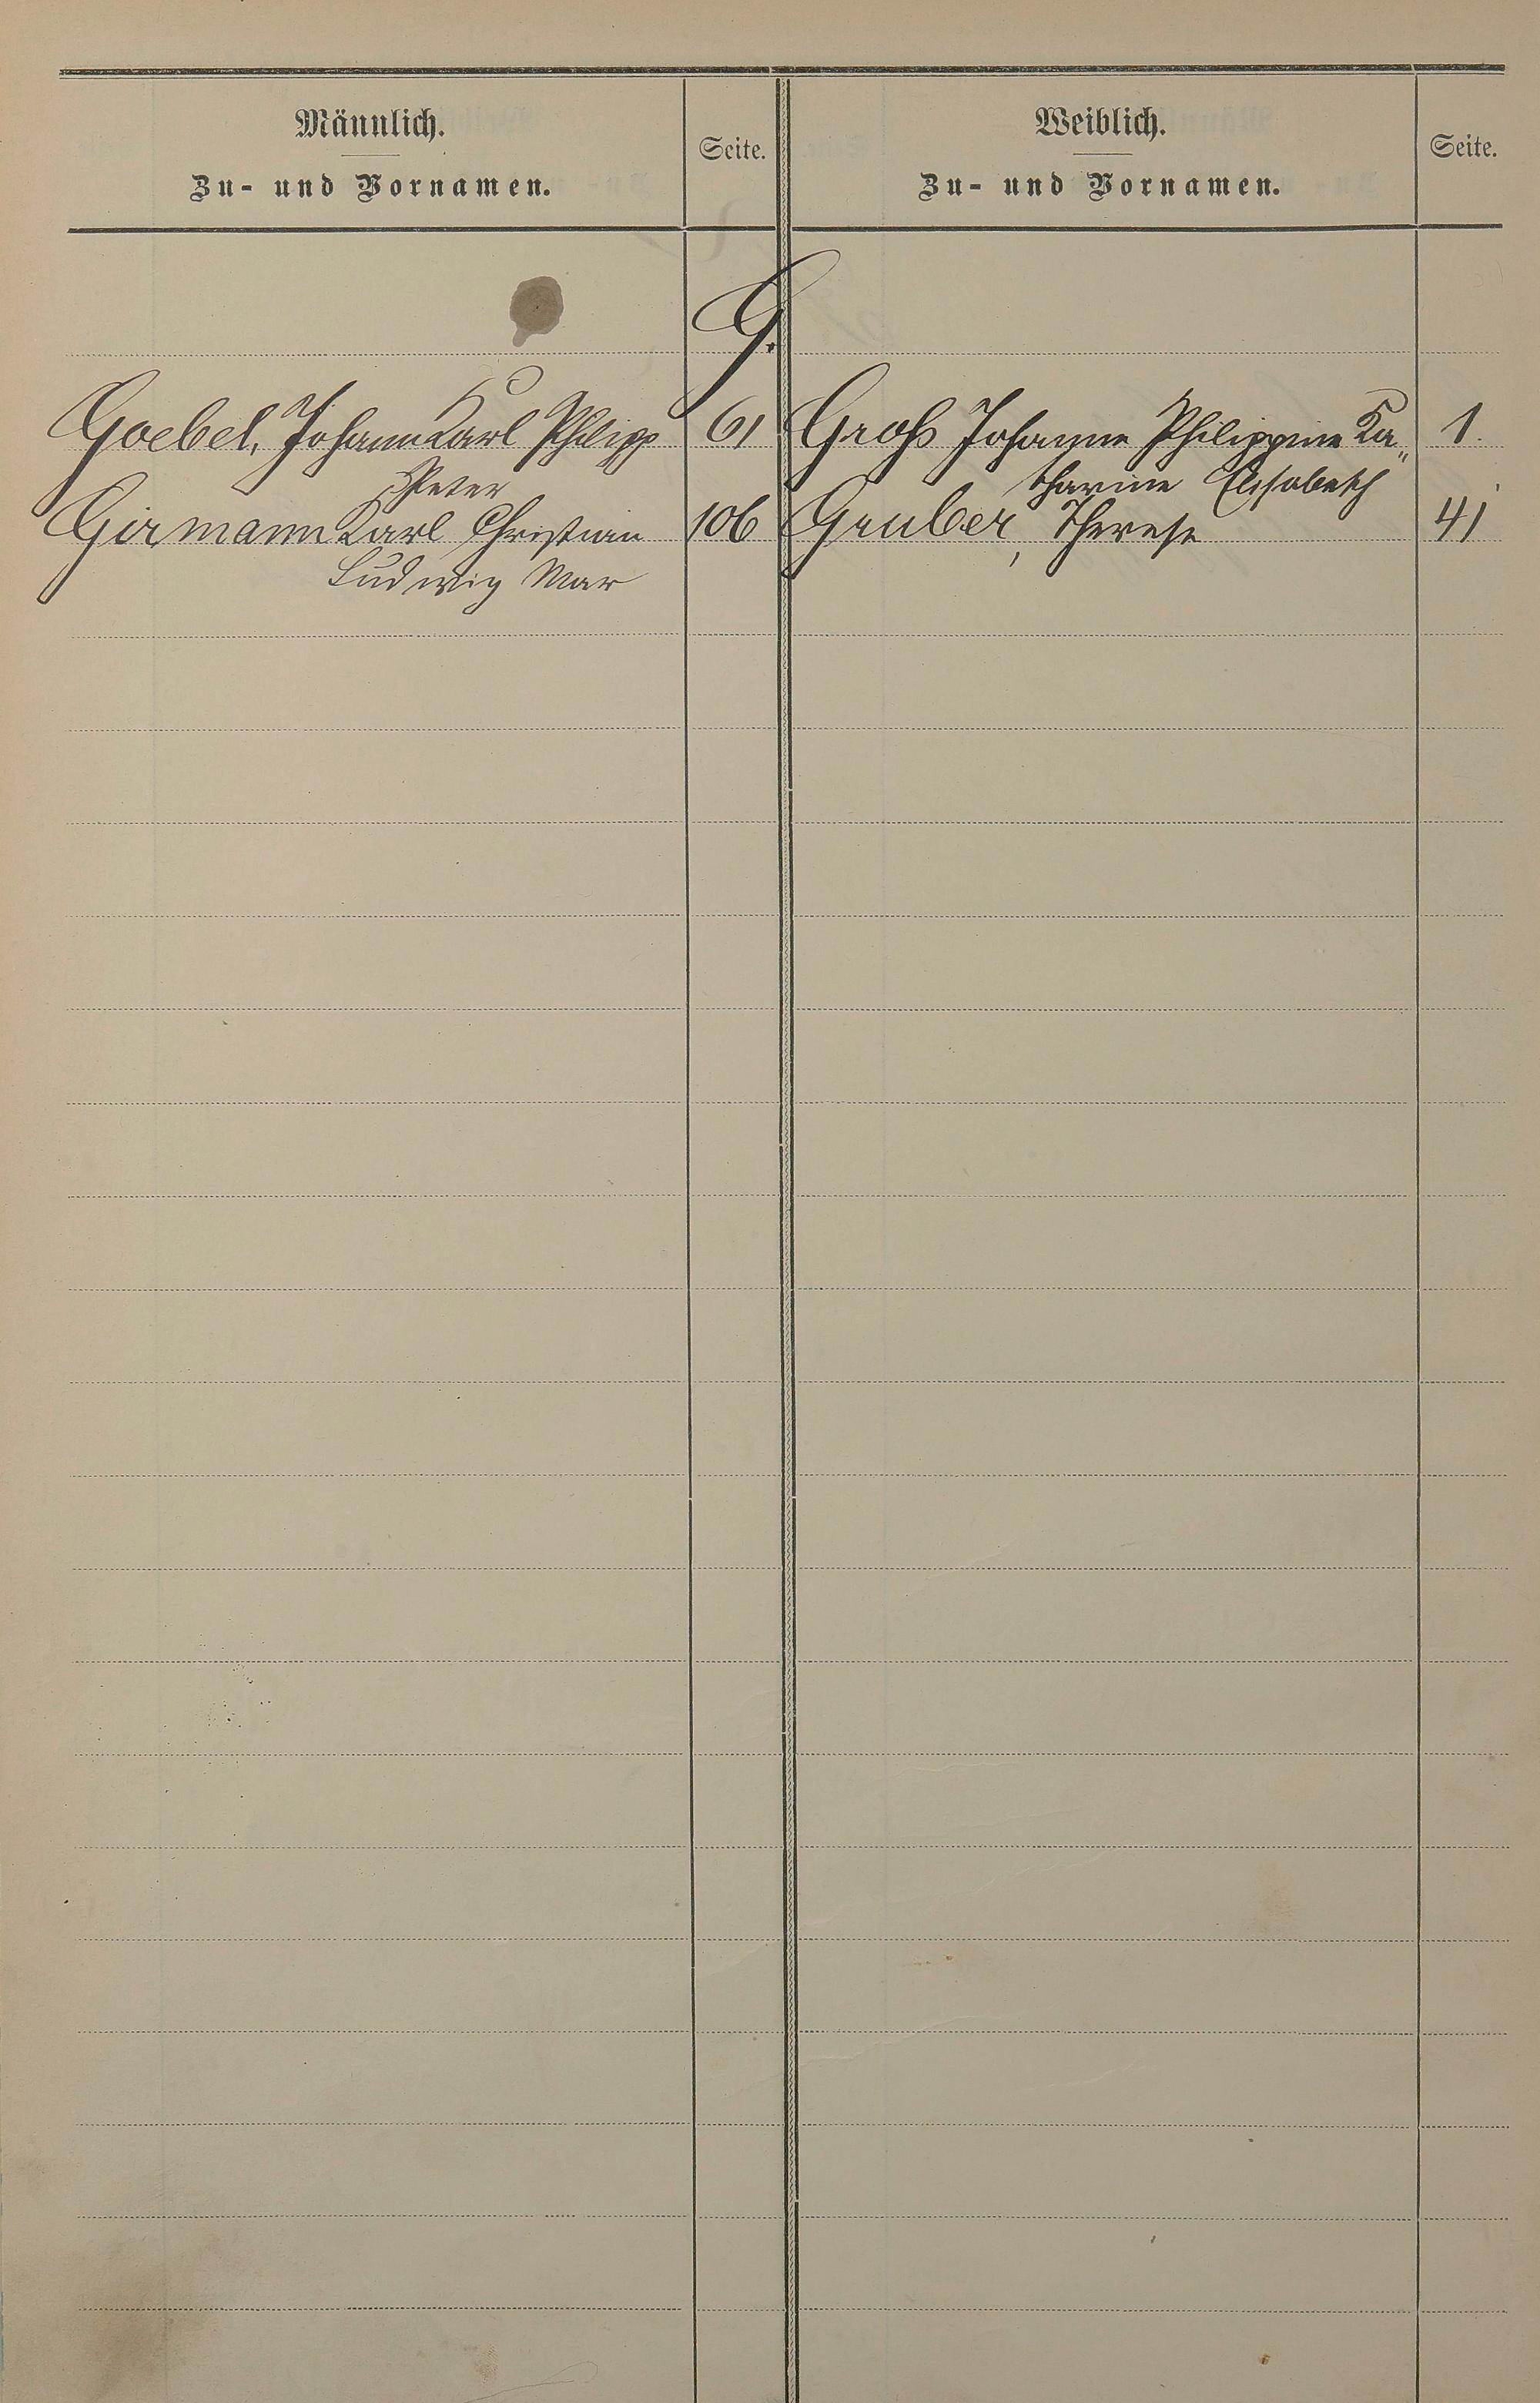 Männlich.
Zu- und Vornamen.
Seite.
Weiblich.
Zu- und Vornamen.
Seite.
G.
Goebel, Johann Karl Philipp 61
Peter
Girmann Karl Christian 106
Ludwig Max
Groß Johanne Philippine Ka„ 1.
tharine Elisabeth
Gruber, Therese 41